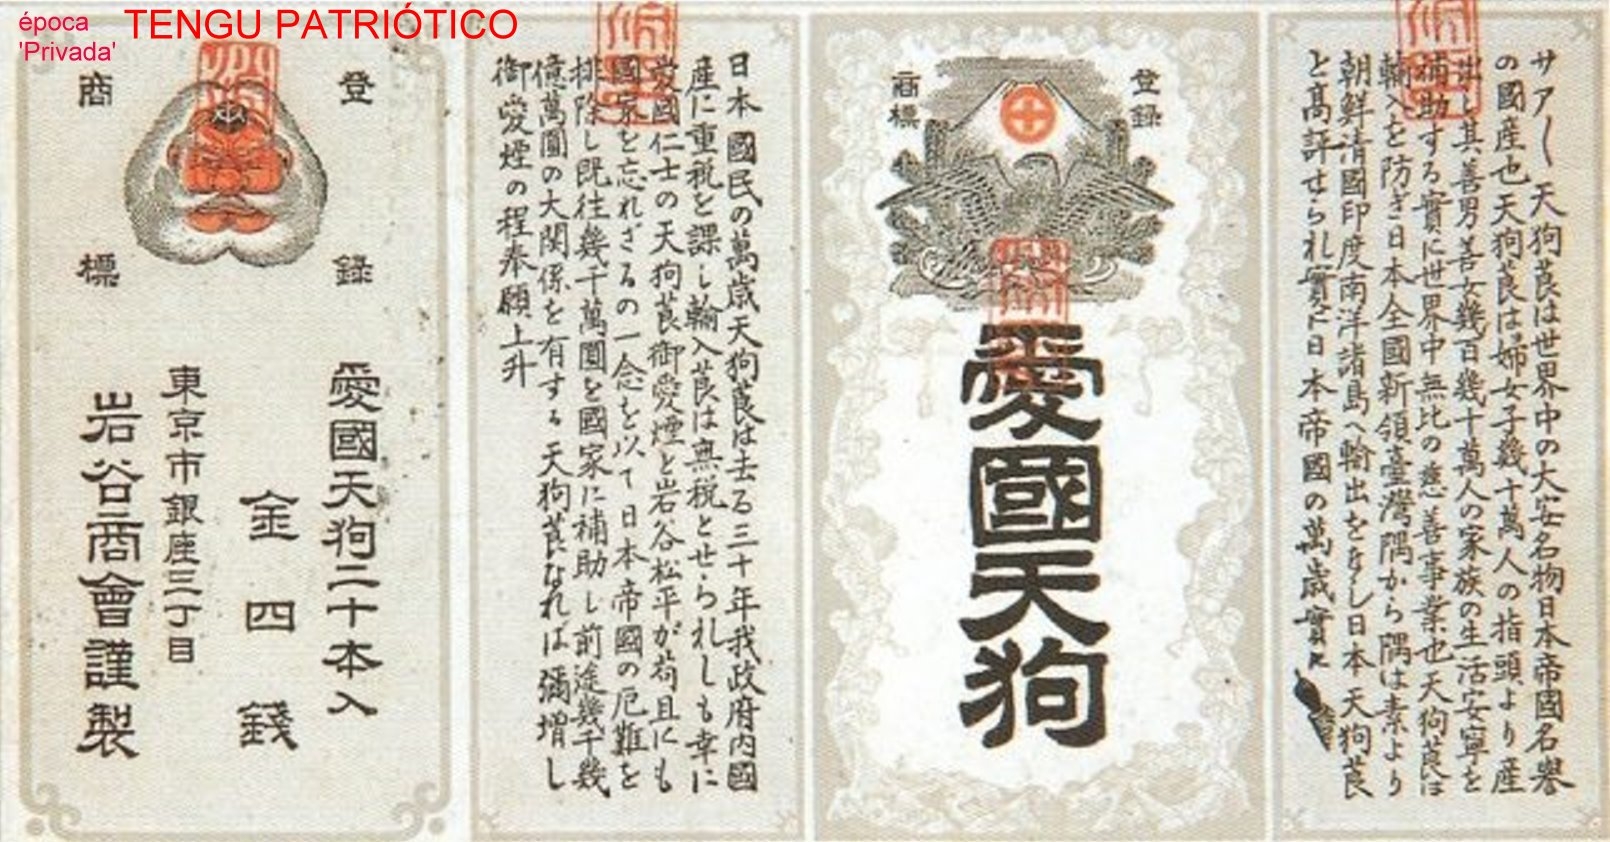 época
'Privada'
TENGU PATRIÓTICO
サアー天狗莨は世界中の大安名物日本帝國名譽
の國産也天狗莨は婦女子幾十萬人の指頭より産
出し其善男善女幾百幾十萬人の家族の生活安寧を
補助する實に世界中無比の慈善事業也天狗莨は
輸入を防ぎ日本全國新領臺灣隅から隅は素より
朝鮮清國印度南洋諸島へ輸出をなし日本天狗莨
と高評せられ實に日本帝國の萬歳實に
登録
商標
愛國天狗
日本國民の萬歳天狗莨は去る三十年我政府内國
産に重税を課し輸入莨は無税とせられしも幸に
愛國仁士の天狗莨御愛煙と岩谷松平が苟且にも
國家を忘れざるの一念を以て日本帝國の厄難を
排除し既往幾千萬圓を國家に補助し前途幾千幾
億萬圓の大関係を有する天狗莨なれば彌増し
御愛煙の程奉願上升
登録
商標
愛國天狗二十本入
金四錢
東京市銀座三丁目
岩谷商會謹製